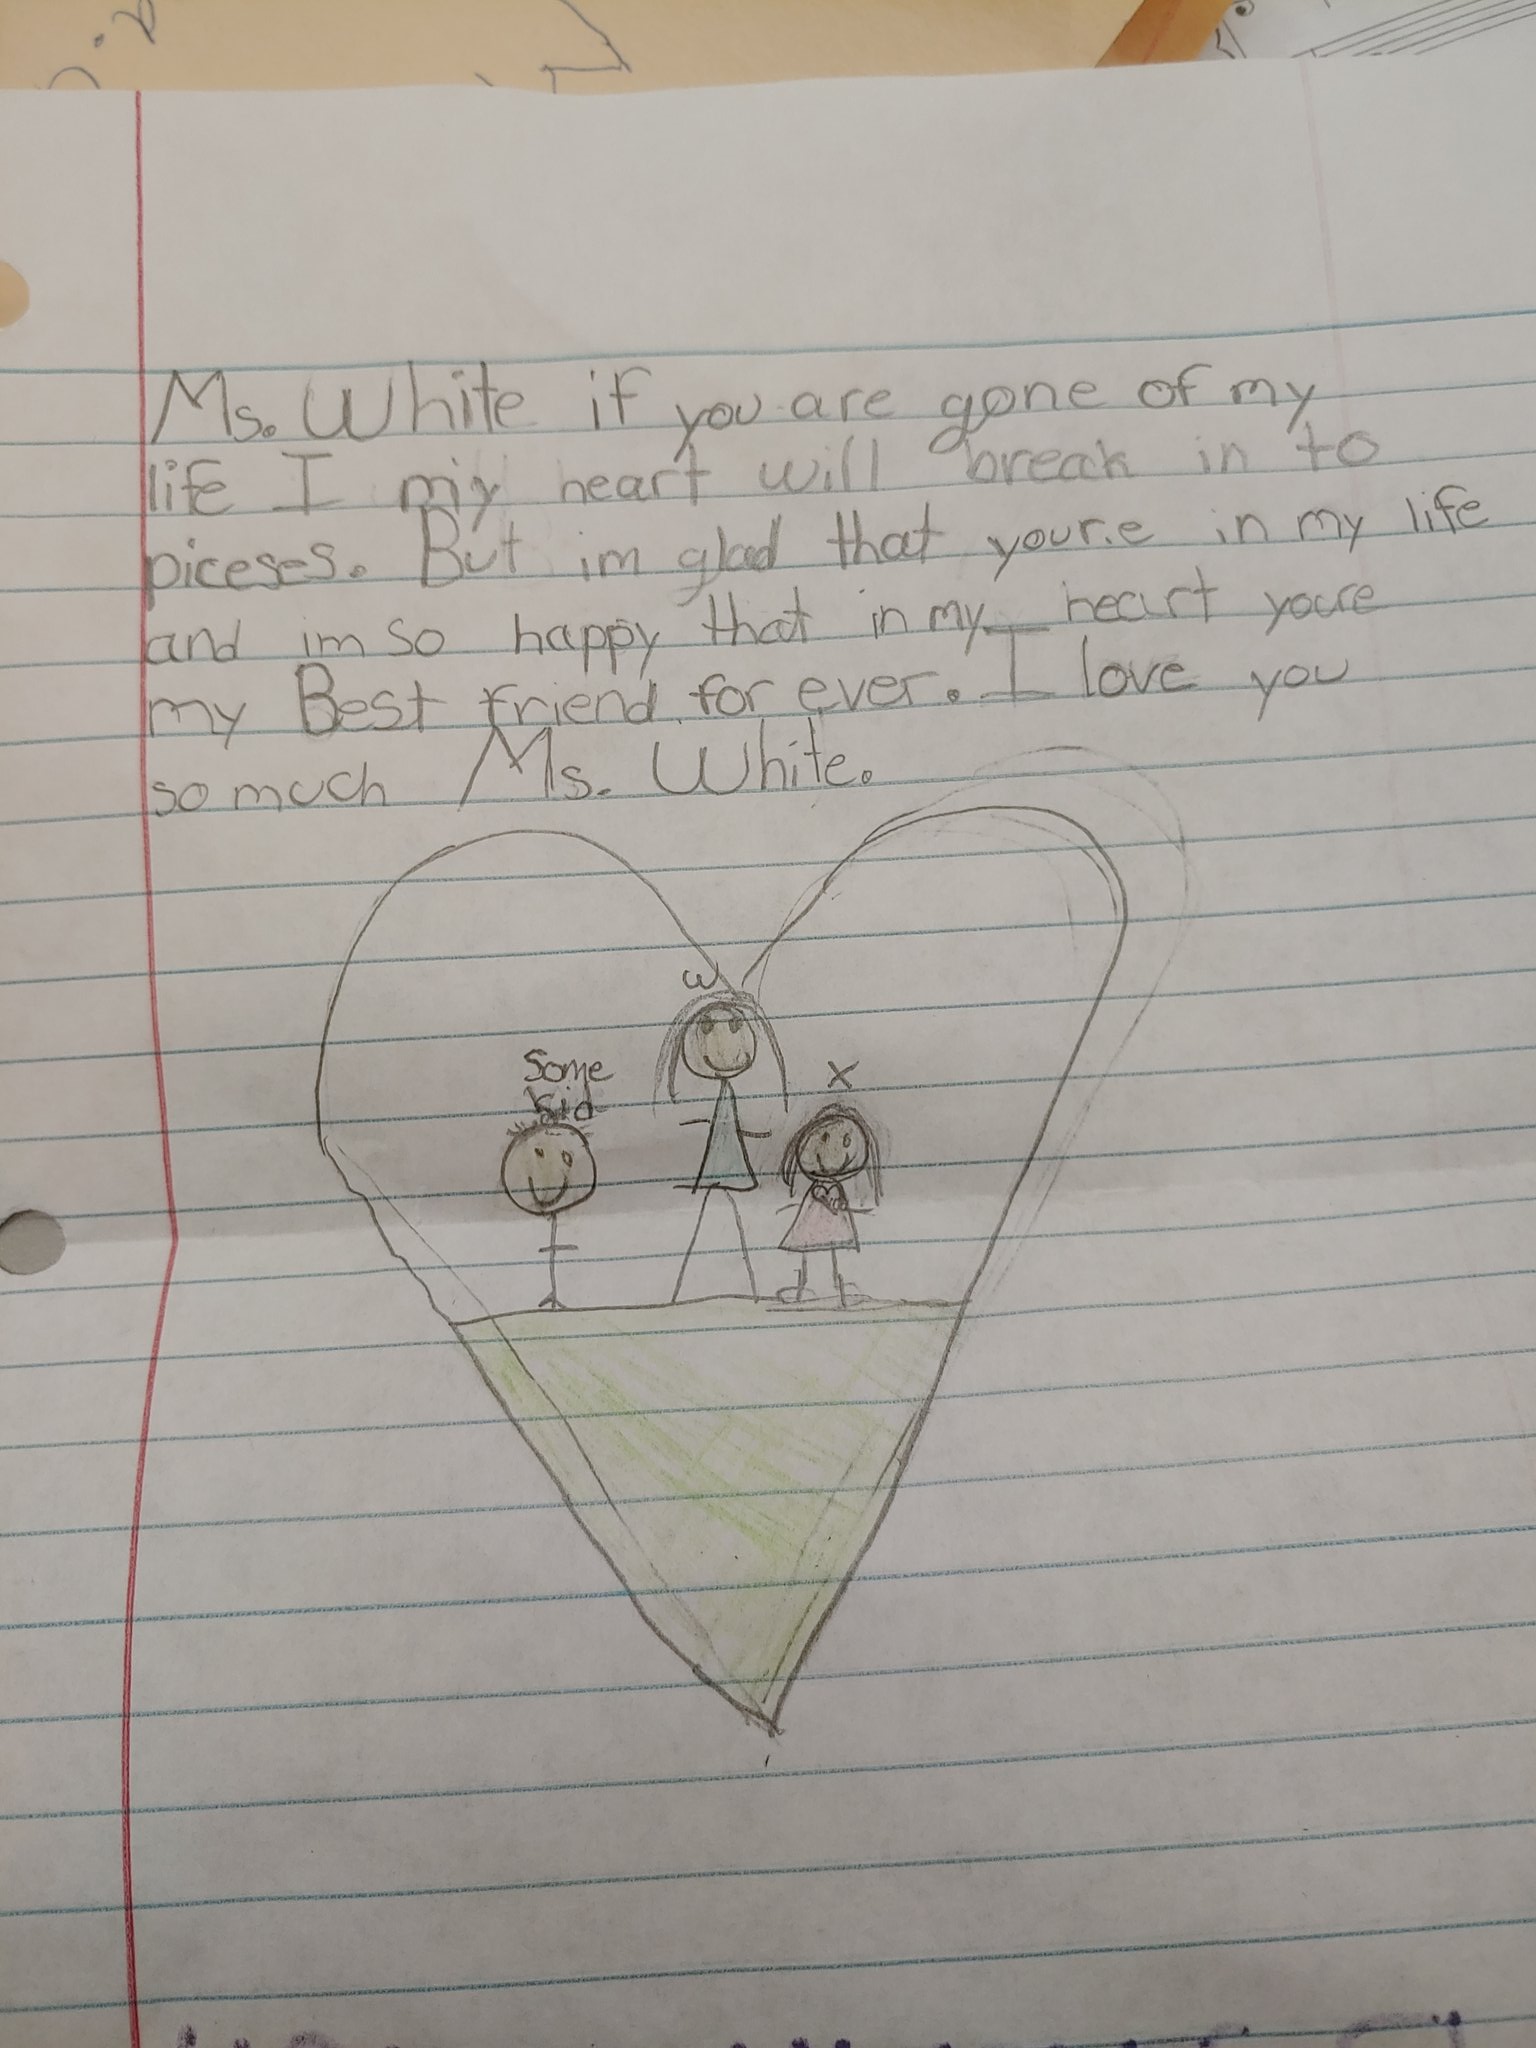 Ms. White if you are gone of my
life I my heart will break in to
piceses. But im glad that your.e in my life
and im so happy that in my heart youre
my Best friend for ever. I love you
so much Ms. White.
W
Some
kid
X